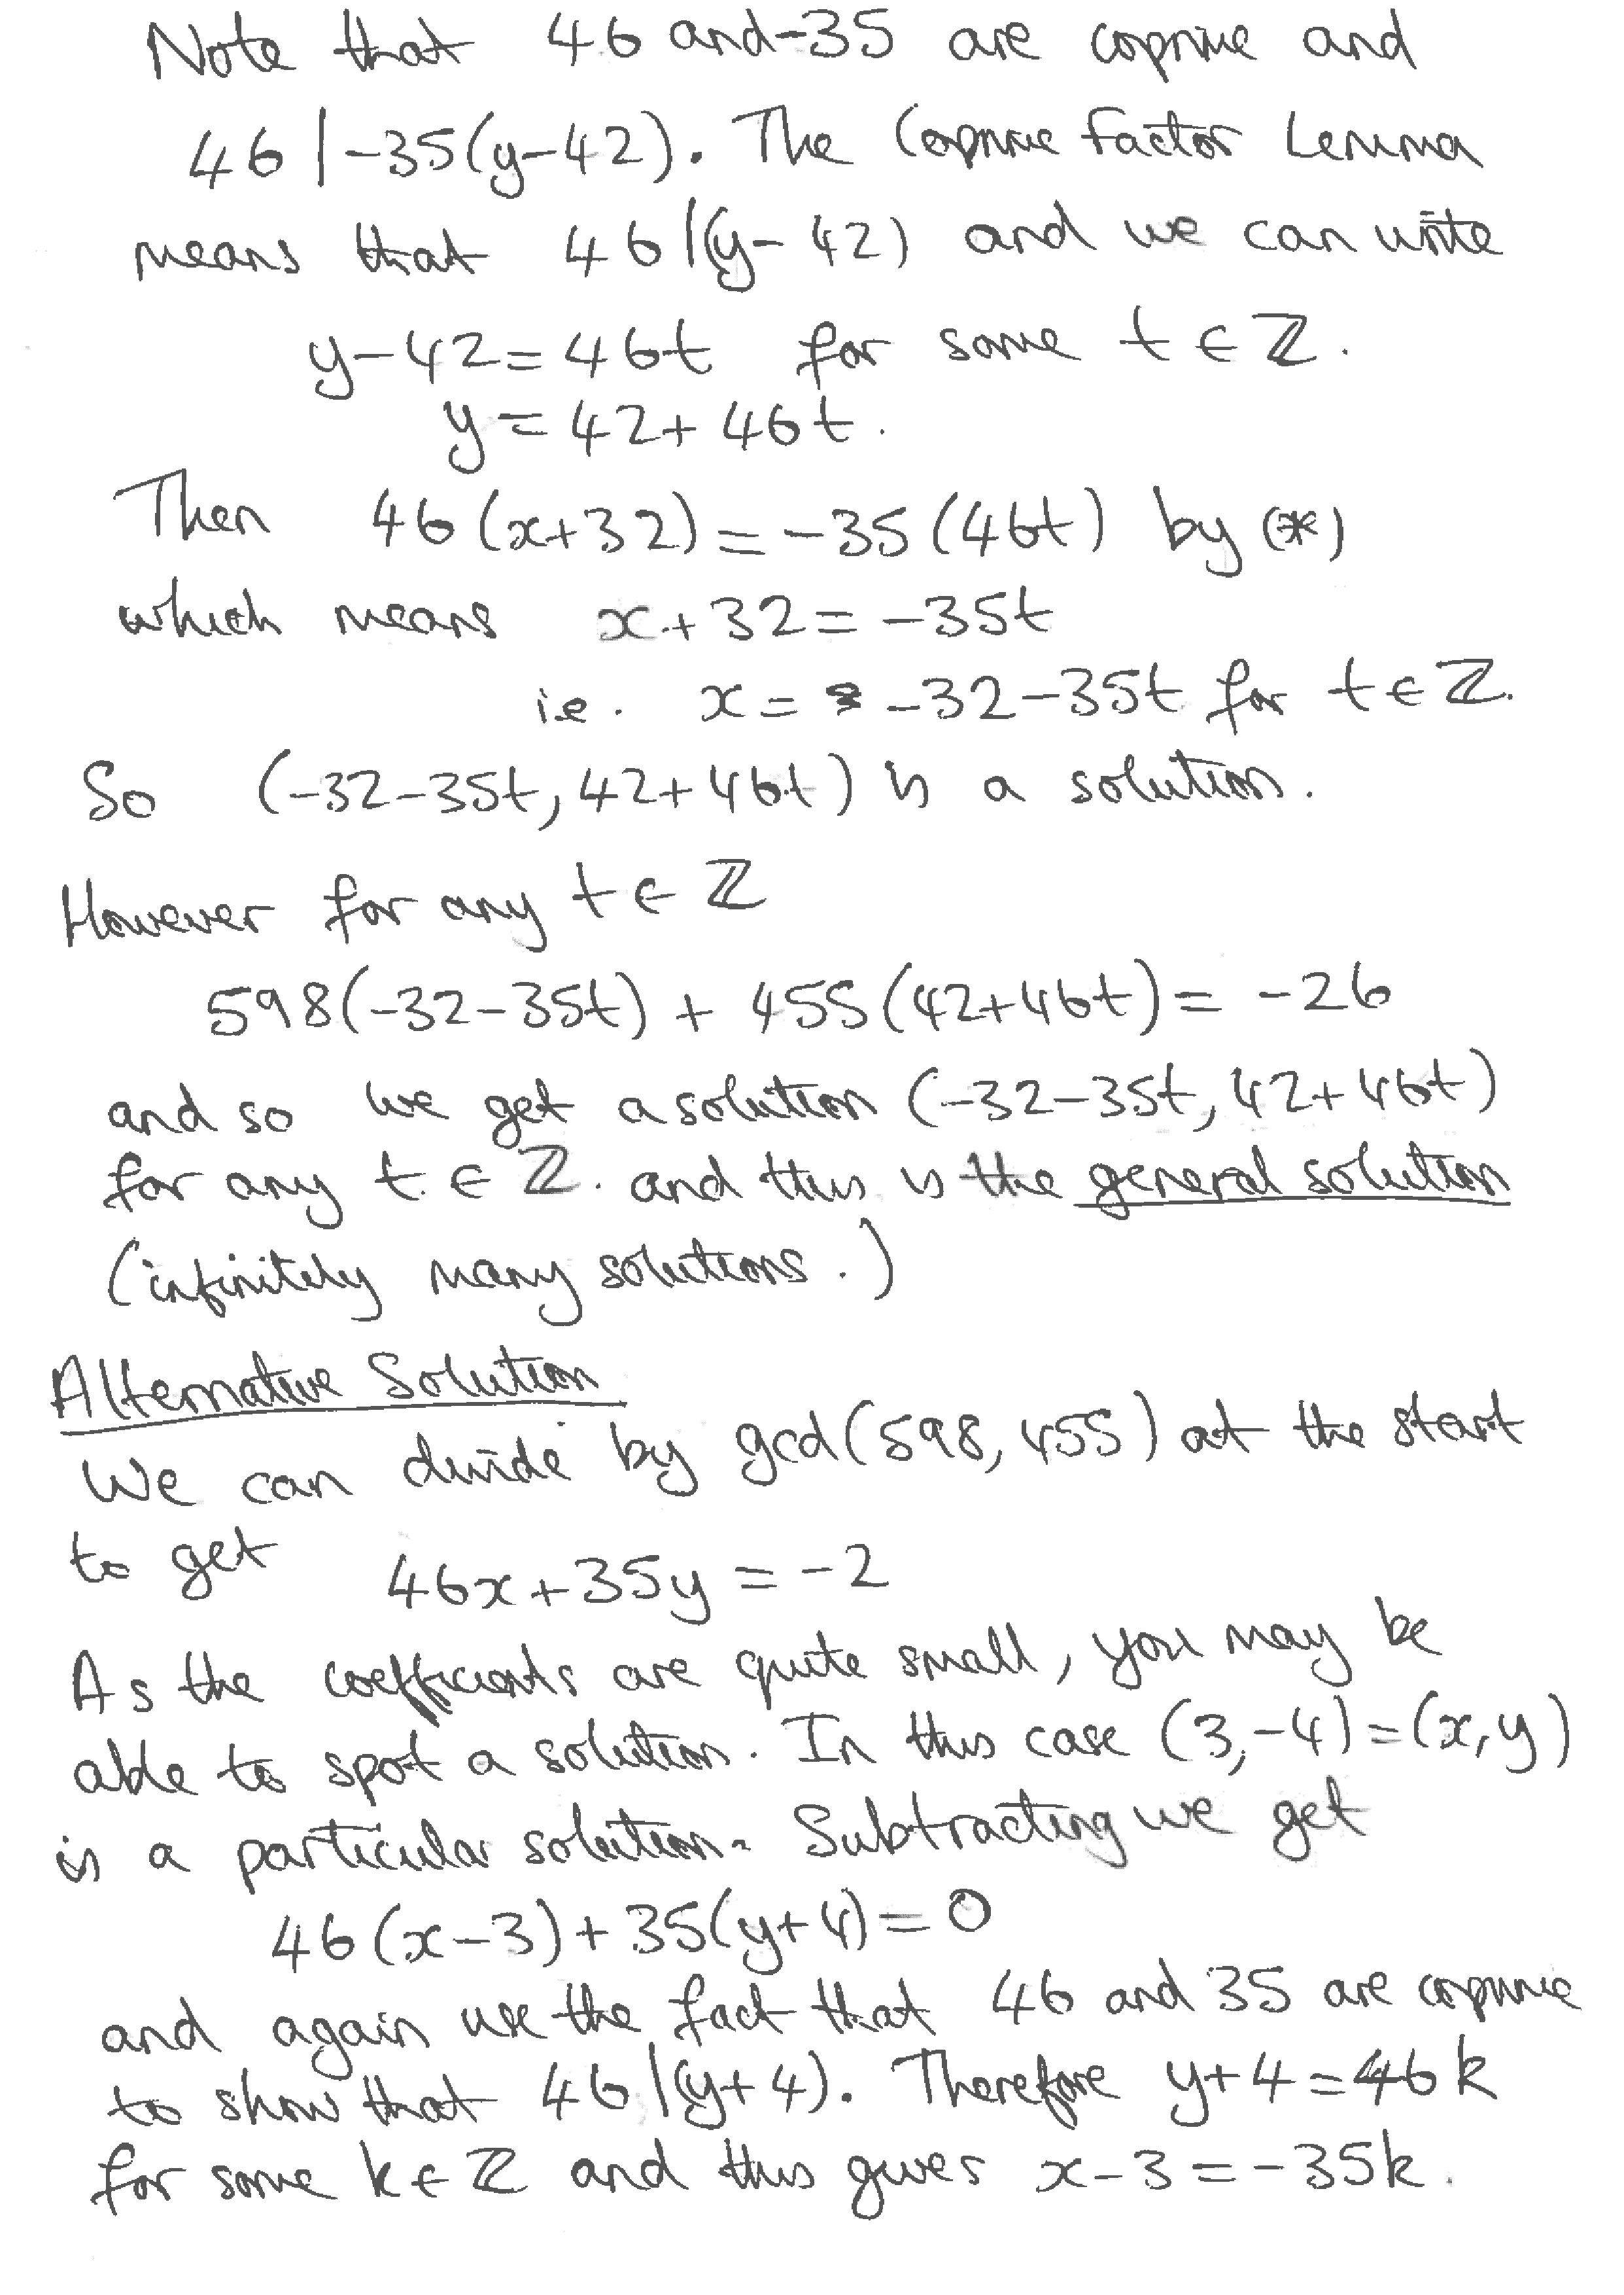 Note that 46 and -35 are coprime and
46 | -35(y-42). The Coprime Factor Lemma
means that 46 | (y-42) and we can write
y-42 = 46t for some t ∈ ℤ.
y = 42 + 46t.
Then 46(x+32) = -35(46t) by (*)
which means x+32 = -35t
i.e. x = -32-35t for t ∈ ℤ.
So (-32-35t, 42+46t) is a solution.
However for any t ∈ ℤ
598(-32-35t) + 455(42+46t) = -26
and so we get a solution (-32-35t, 42+46t)
for any t ∈ ℤ. and this is the general solution
(infinitely many solutions.)
Alternative Solution
We can divide by gcd(598, 455) at the start
to get 46x + 35y = -2
As the coefficients are quite small, you may be
able to spot a solution. In this case (3,-4) = (x,y)
is a particular solution. Subtracting we get
46(x-3) + 35(y+4) = 0
and again use the fact that 46 and 35 are coprime
to show that 46 | (y+4). Therefore y+4 = 46k
for some k ∈ ℤ and this gives x-3 = -35k.